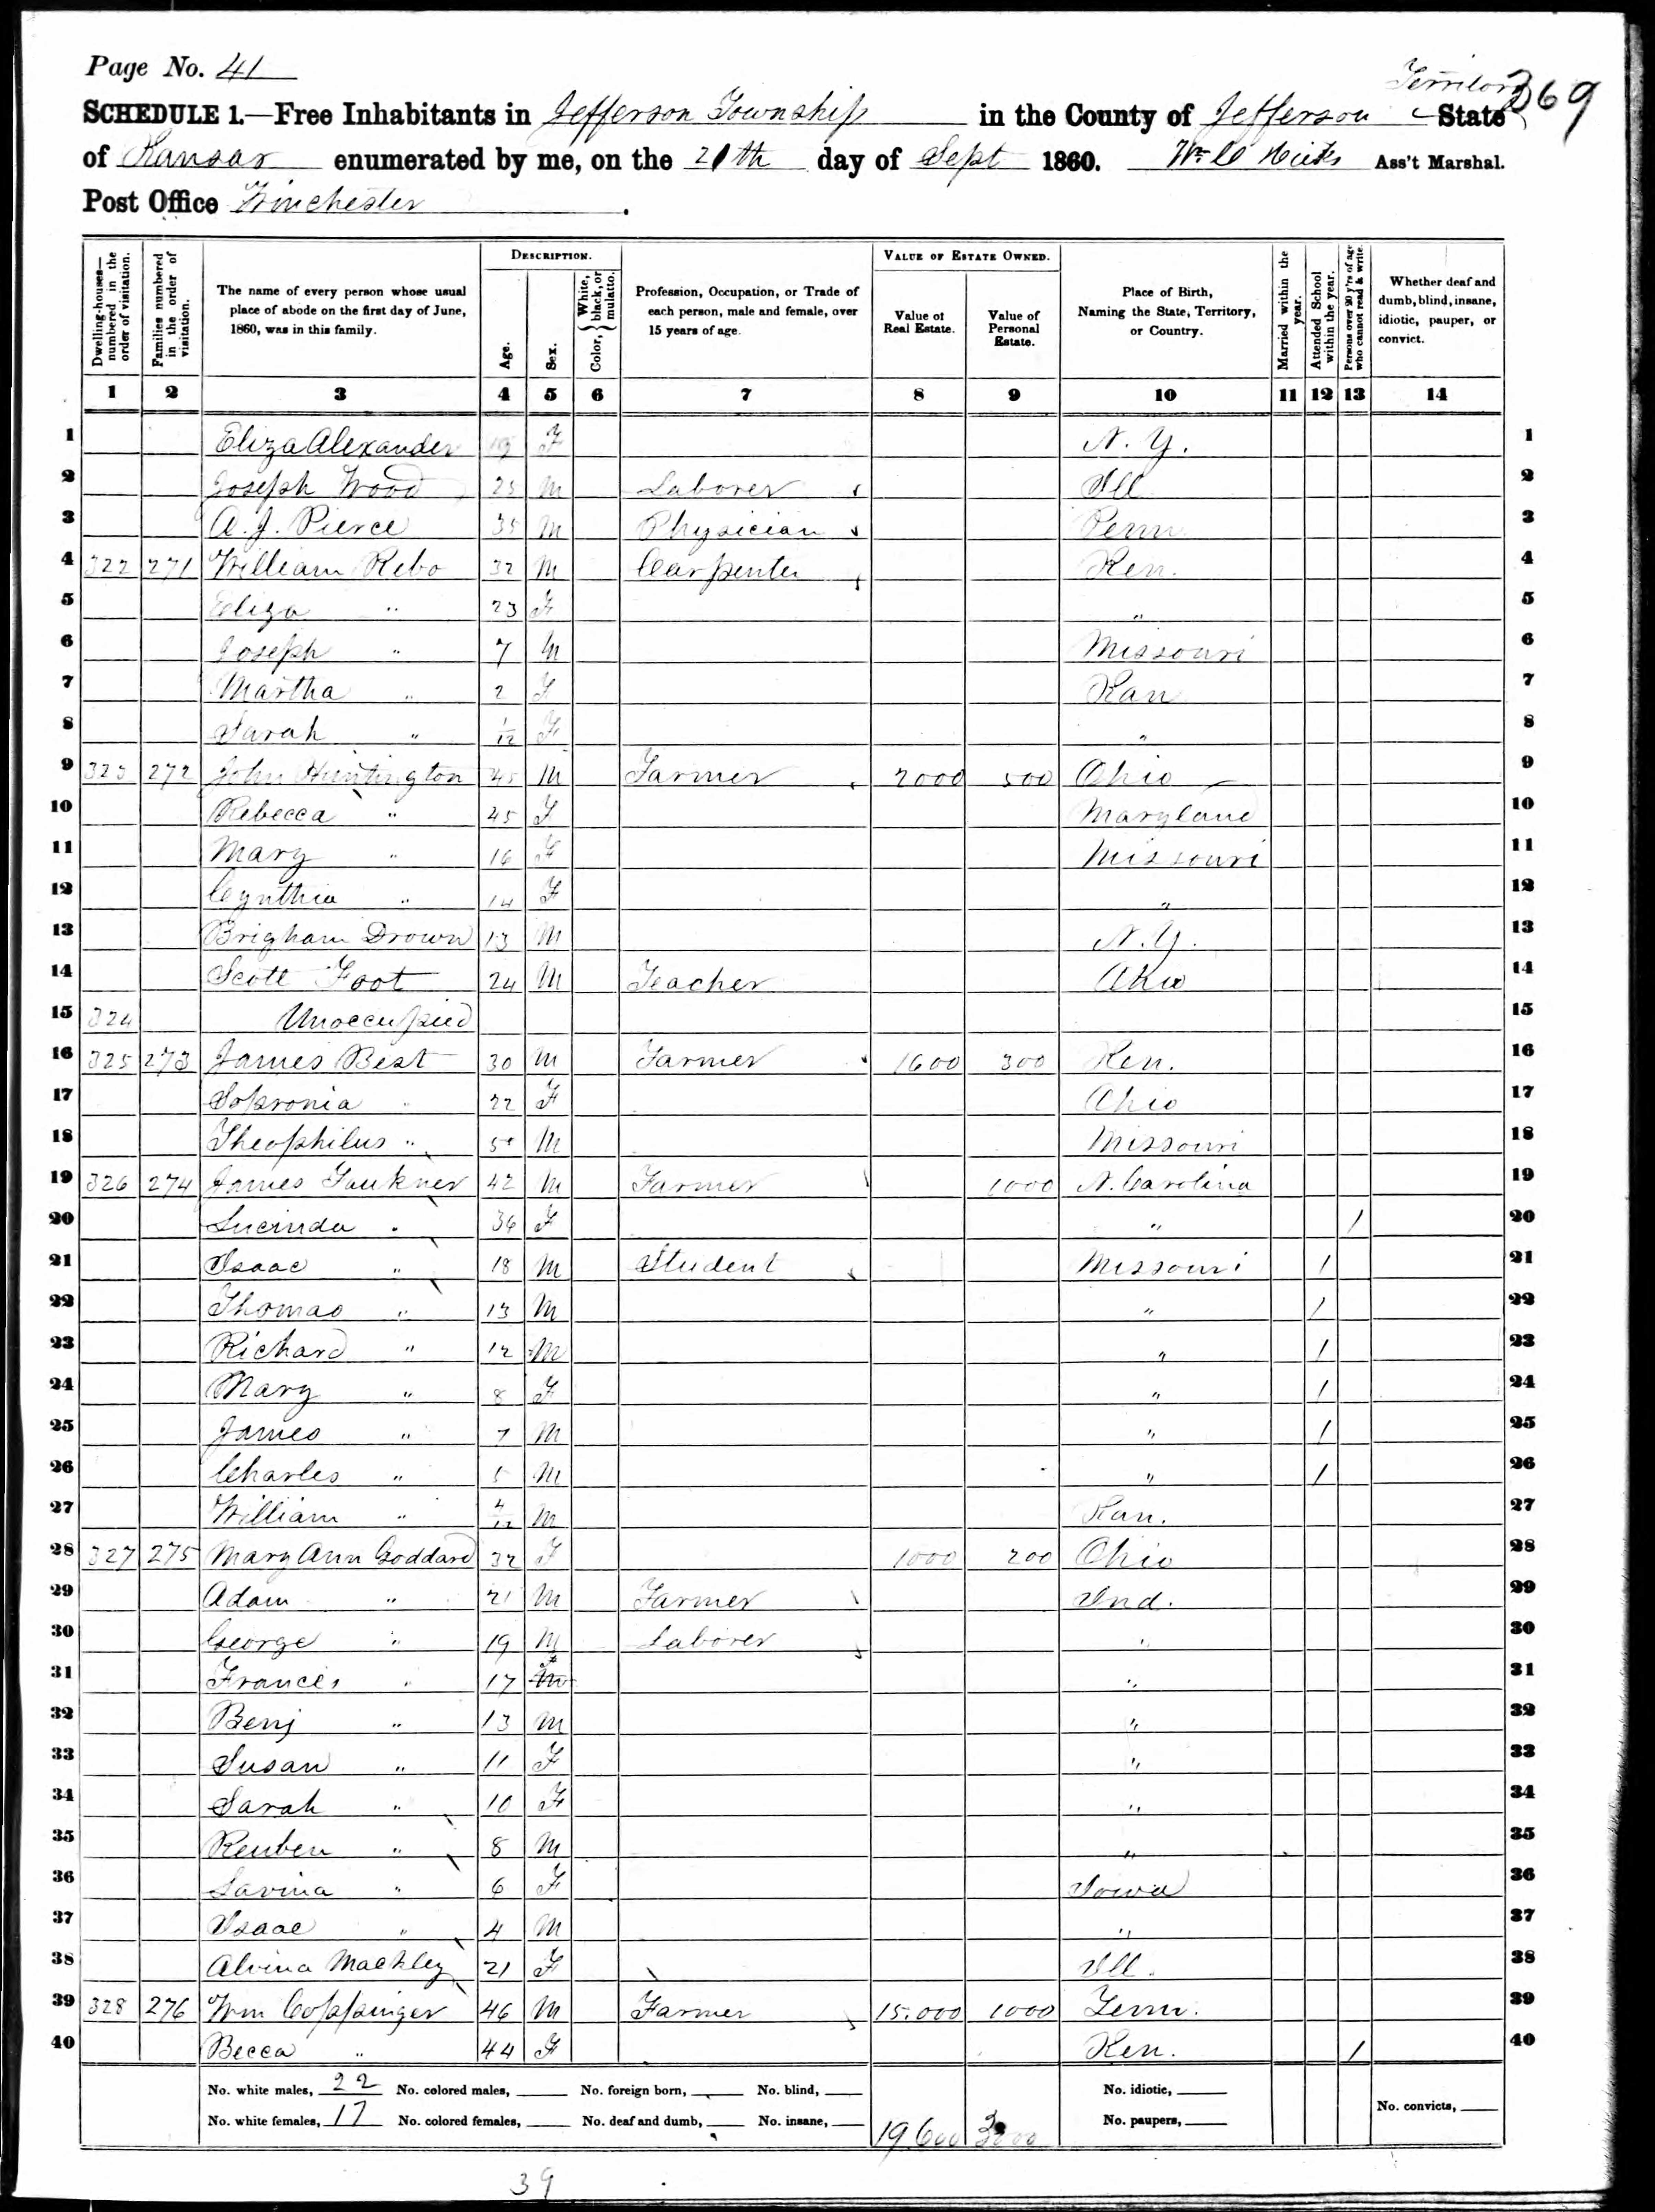 Page No. 41
Territory 369
SCHEDULE 1.—Free Inhabitants in Jefferson Township in the County of Jefferson State
of Kansas enumerated by me, on the 21th day of Sept 1860. Ass't Marshal.
Post Office Winchester.
Dwelling-houses—numbered in the order of visitation. Families numbered in the order of visitation. The name of every person whose usual place of abode on the first day of June, 1860, was in this family. DESCRIPTION. Age. Sex. Color, { White, black, or mulatto. Profession, Occupation, or Trade of each person, male and female, over 15 years of age. VALUE OF ESTATE OWNED. Value of Real Estate. Value of Personal Estate. Place of Birth, Naming the State, Territory, or Country. Married within the year. Attended School within the year. Persons over 20 y'rs of age who cannot read & write. Whether deaf and dumb, blind, insane, idiotic, pauper, or convict.
1 2 3 4 5 6 7 8 9 10 11 12 13 14
1 Eliza Alexander F N.Y. 1
2 Joseph Wood 25 M Laborer Ill 2
3 A. J. Pierce 35 M Physician Penn 3
4 322 271 William Rebo 32 M Carpenter Ken. 4
5 Eliza " 23 F " 5
6 Joseph " 7 M Missouri 6
7 Martha " 2 F Kan 7
8 Sarah " 1/12 F " 8
9 323 272 John Huntington 45 M Farmer 2000 500 Ohio 9
10 Rebecca " 45 F Maryland 10
11 Mary " 16 F Missouri 11
12 Cynthia " 14 F " 12
13 Brigham Drown 13 M N.Y. 13
14 Scott Foot 24 M Teacher Ohio 14
15 324 Unoccupied 15
16 325 273 James Best 30 M Farmer 1600 300 Ken. 16
17 Sopronia " 22 F Ohio 17
18 Theophilus " 5 M Missouri 18
19 326 274 James Faukner 42 M Farmer 1000 N. Carolina 19
20 Lucinda " 36 F " / 20
21 Isaac " 18 M Student Missouri / 21
22 Thomas " 13 M " / 22
23 Richard " 12 M " / 23
24 Mary " 8 F " / 24
25 James " 7 M " / 25
26 Charles " 5 M " / 26
27 William " 4/12 M Kan. 27
28 327 275 Mary Ann Goddard 32 F 1000 200 Ohio 28
29 Adam " 21 M Farmer Ind. 29
30 George " 19 M Laborer " 30
31 Frances " 17 F " 31
32 Benj " 13 M " 32
33 Susan " 11 F " 33
34 Sarah " 10 F " 34
35 Reuben " 8 M " 35
36 Lavina " 6 F Iowa 36
37 Isaac " 4 M " 37
38 Alvina Machley 21 F Ill. 38
39 328 276 Wm Coppinger 46 M Farmer 15.000 1000 Tenn. 39
40 Becca " 44 F Ken. / 40
No. white males, 22 No. colored males, No. foreign born, No. blind, No. idiotic,
No. white females, 17 No. colored females, No. deaf and dumb, No. insane, 19600 3000 No. paupers, No. convicts,
39